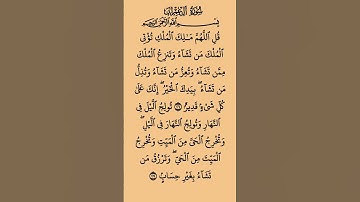 سُورَةُ آلِ عِمْرَانَ
بِسْمِ اللَّهِ الرَّحْمَٰنِ الرَّحِيمِ
قُلِ اللَّهُمَّ مَٰلِكَ الْمُلْكِ تُؤْتِي
الْمُلْكَ مَن تَشَآءُ وَتَنزِعُ الْمُلْكَ
مِمَّن تَشَآءُ وَتُعِزُّ مَن تَشَآءُ وَتُذِلُّ
مَن تَشَآءُ ۖ بِيَدِكَ الْخَيْرُ ۖ إِنَّكَ عَلَىٰ
كُلِّ شَيْءٍ قَدِيرٌ ۝ تُولِجُ الَّيْلَ فِي
النَّهَارِ وَتُولِجُ النَّهَارَ فِي الَّيْلِ ۖ
وَتُخْرِجُ الْحَيَّ مِنَ الْمَيِّتِ وَتُخْرِجُ
الْمَيِّتَ مِنَ الْحَيِّ ۖ وَتَرْزُقُ مَن
تَشَآءُ بِغَيْرِ حِسَابٍ ۝